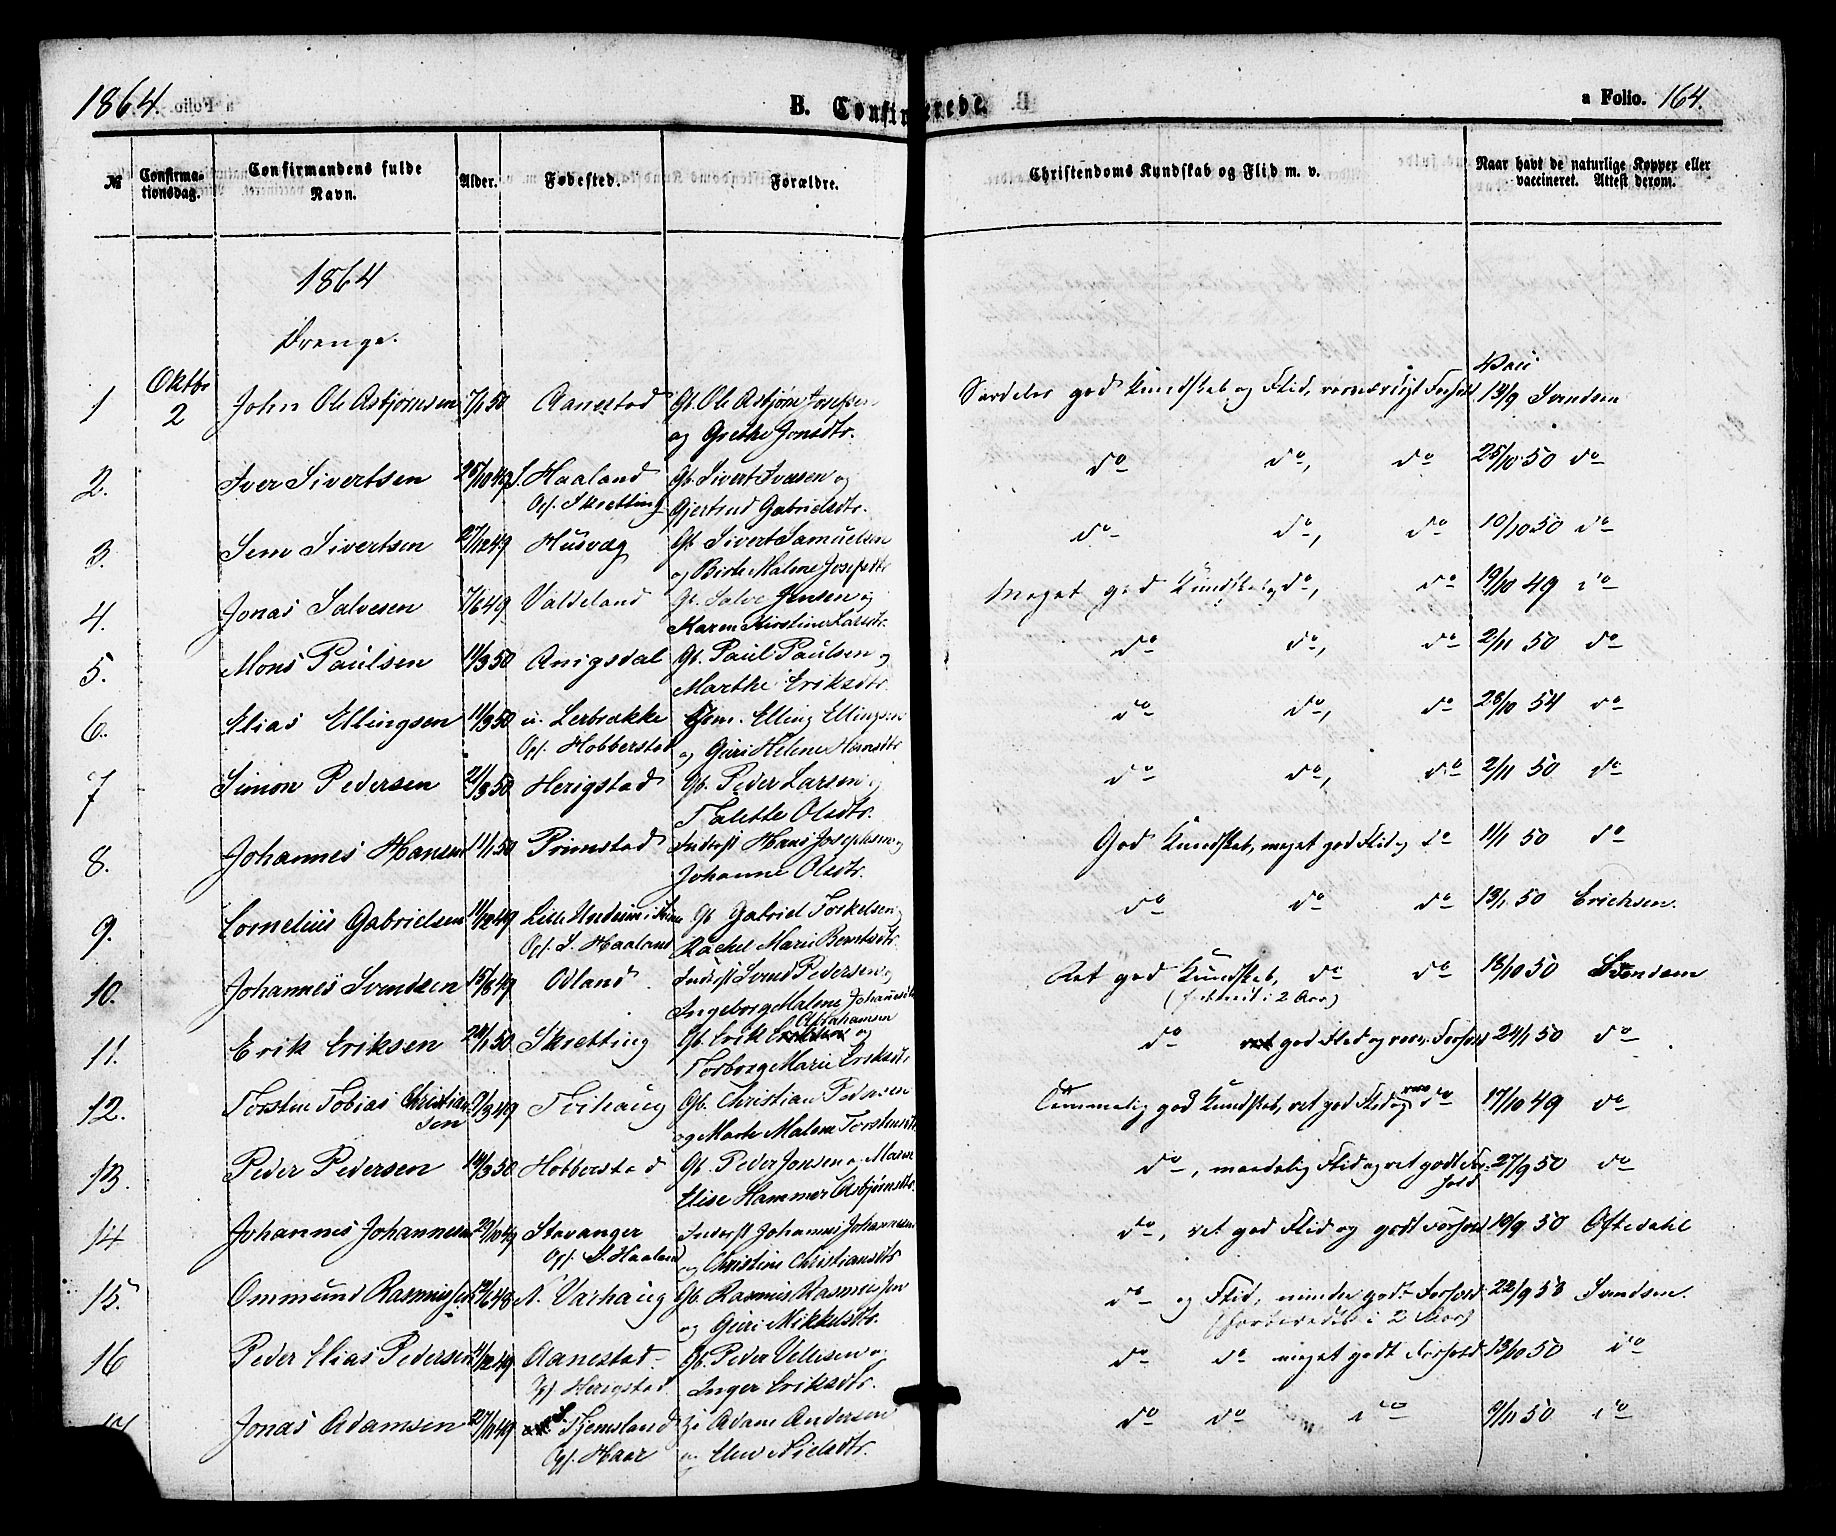 1864.
B. Confirmerede.
a Folio. 164.
№
Confirma-
tionsdag.
Confirmandens fulde
Navn.
Alder.
Fødested.
Forældre.
Christendoms Kundskab og Flid m. v.
Naar havt de naturlige Kopper eller
vaccineret. Attest derom.
1864
Drenge.
Oktbr
1 2 John Ole Asbjørnsen 7/1 50 Aanestad Gb. Ole Asbjørn Josefsen Særdeles god Kundskab og Flid, Forhold Vacc 13/9 Svendsen
og Grethe Jonsdtr.
2. Iver Sivertsen 25/10 49 S. Haaland Gb. Sivert Iversen og do do, do 25/10 50 do
Opf. Skretting Gjertrud Gabrielsdtr.
3. Sem Sivertsen 27/12 49 Husvæg Gb. Sivert Samuelsen do do, do 10/10 50 do
og Birte Malene Josefsdtr
4. Jonas Salvesen 7/6 49 Valdeland Gb. Salve Jensen og Meget god Kundskab, do, do 19/10 49 do
Karen Kirstine Larsdtr.
5. Mons Paulsen 11/3 50 Anigsdal Gb. Paul Paulsen og do do, do 2/11 50 do
Marthe Eriksdtr.
6. Elias Ellingsen 11/3 50 u. Lerbrække Elling Ellingsen do do, do 28/10 54 do
Opf. Hobberstad og Guri Helene Hansdtr
7 Simon Pedersen 21/3 50 Herigstad Gb. Peder Larsen og do do, do 2/11 50 do
Talette Olsdtr.
8. Johannes Hansen 11/1 50 Primstad Inderst Hans Josephsen og God Kundskab, meget god Flid og do 11/1 50 do
Johanne Olsdtr.
9. Cornelius Gabrielsen 11/12 49 Lille Undeim i Time Gb Gabriel Torkelsen og do do do 13/1 50 Erichsen.
Opf. S. Haaland Rachel Marie Berntsdtr.
10. Johannes Svendsen 15/8 49 Odland. Inderst Svend Pedersen og Ret god Kundskab, do do 18/10 50 Svendsen
Ingeborg Malene Johannesdtr (i 2 Aar)
Abrahamsen
11. Erik Eriksen 24/1 50 Skretting Gb. Erik og do god Flid og Forhold 24/1 50 do
Torborg Marie Eriksdtr
12. Torsten Tobias Christian 9/3 49 Toihaug Gb. Christian Pedersen Temmelig god Kundskab, ret god Flid og do 17/10 49 do
sen og Marte Malene Torstensdtr
13. Peder Pedersen 14/3 50 Hobberstad Gb. Peder Jonsen og Maren do, maadelig Flid og ret godt For- 27/9 50 do
Elise Hammer Asbjørnsdtr. hold
14 Johannes Johannesen 29/10 49 Stavanger Inderst Johannes Johannesen do, ret god Flid og godt Forhold 19/9 50 Oftedahl
Opf. S. Haaland og Christine Christiansdtr
15. Ommund Rasmussen 12/6 48 N. Varhaug Gb. Rasmus Rasmussen do og Flid, mindre godt Forhold 22/9 50 Svendsen.
og Guri Mikkelsdtr. (forberedet i 2 Aar)
16 Peder Elias Pedersen 11/12 49 Aanestad. Gb. Peder Vellesen og do do meget godt Forhold 13/10 50 do
Opf. Herigstad Inger Eriksdtr.
Jonas Adamsen 27/10 49 S. Tjemsland Adam Andersen do do do 9/11 50 do
Opf. Haar og Elen Nielsdtr.